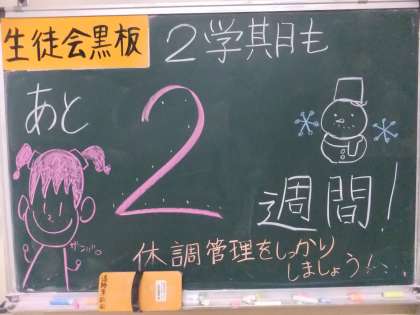 生徒会黒板
2学期も
あと
2
週間!
休調管理をしっかり
しましょう!